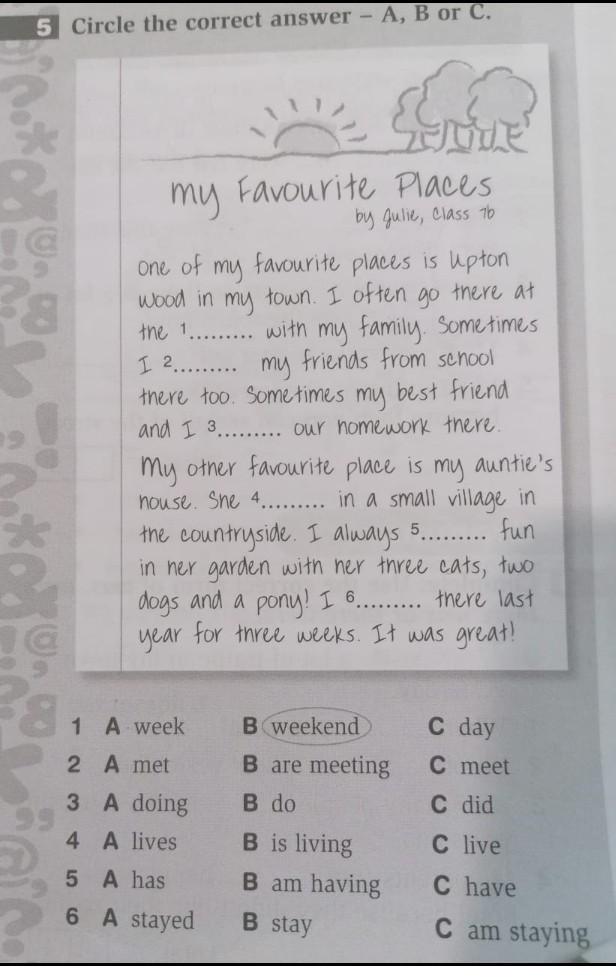 5 Circle the correct answer – A, B or C.
My Favourite Places
by Julie, Class 7b
One of my favourite places is Upton
Wood in my town. I often go there at
the 1......... with my family. Sometimes
I 2......... my friends from school
there too. Sometimes my best friend
and I 3......... our homework there.
My other favourite place is my auntie's
house. She 4......... in a small village in
the countryside. I always 5......... fun
in her garden with her three cats, two
dogs and a pony! I 6......... there last
year for three weeks. It was great!
1 A week B weekend C day
2 A met B are meeting C meet
3 A doing B do C did
4 A lives B is living C live
5 A has B am having C have
6 A stayed B stay C am staying